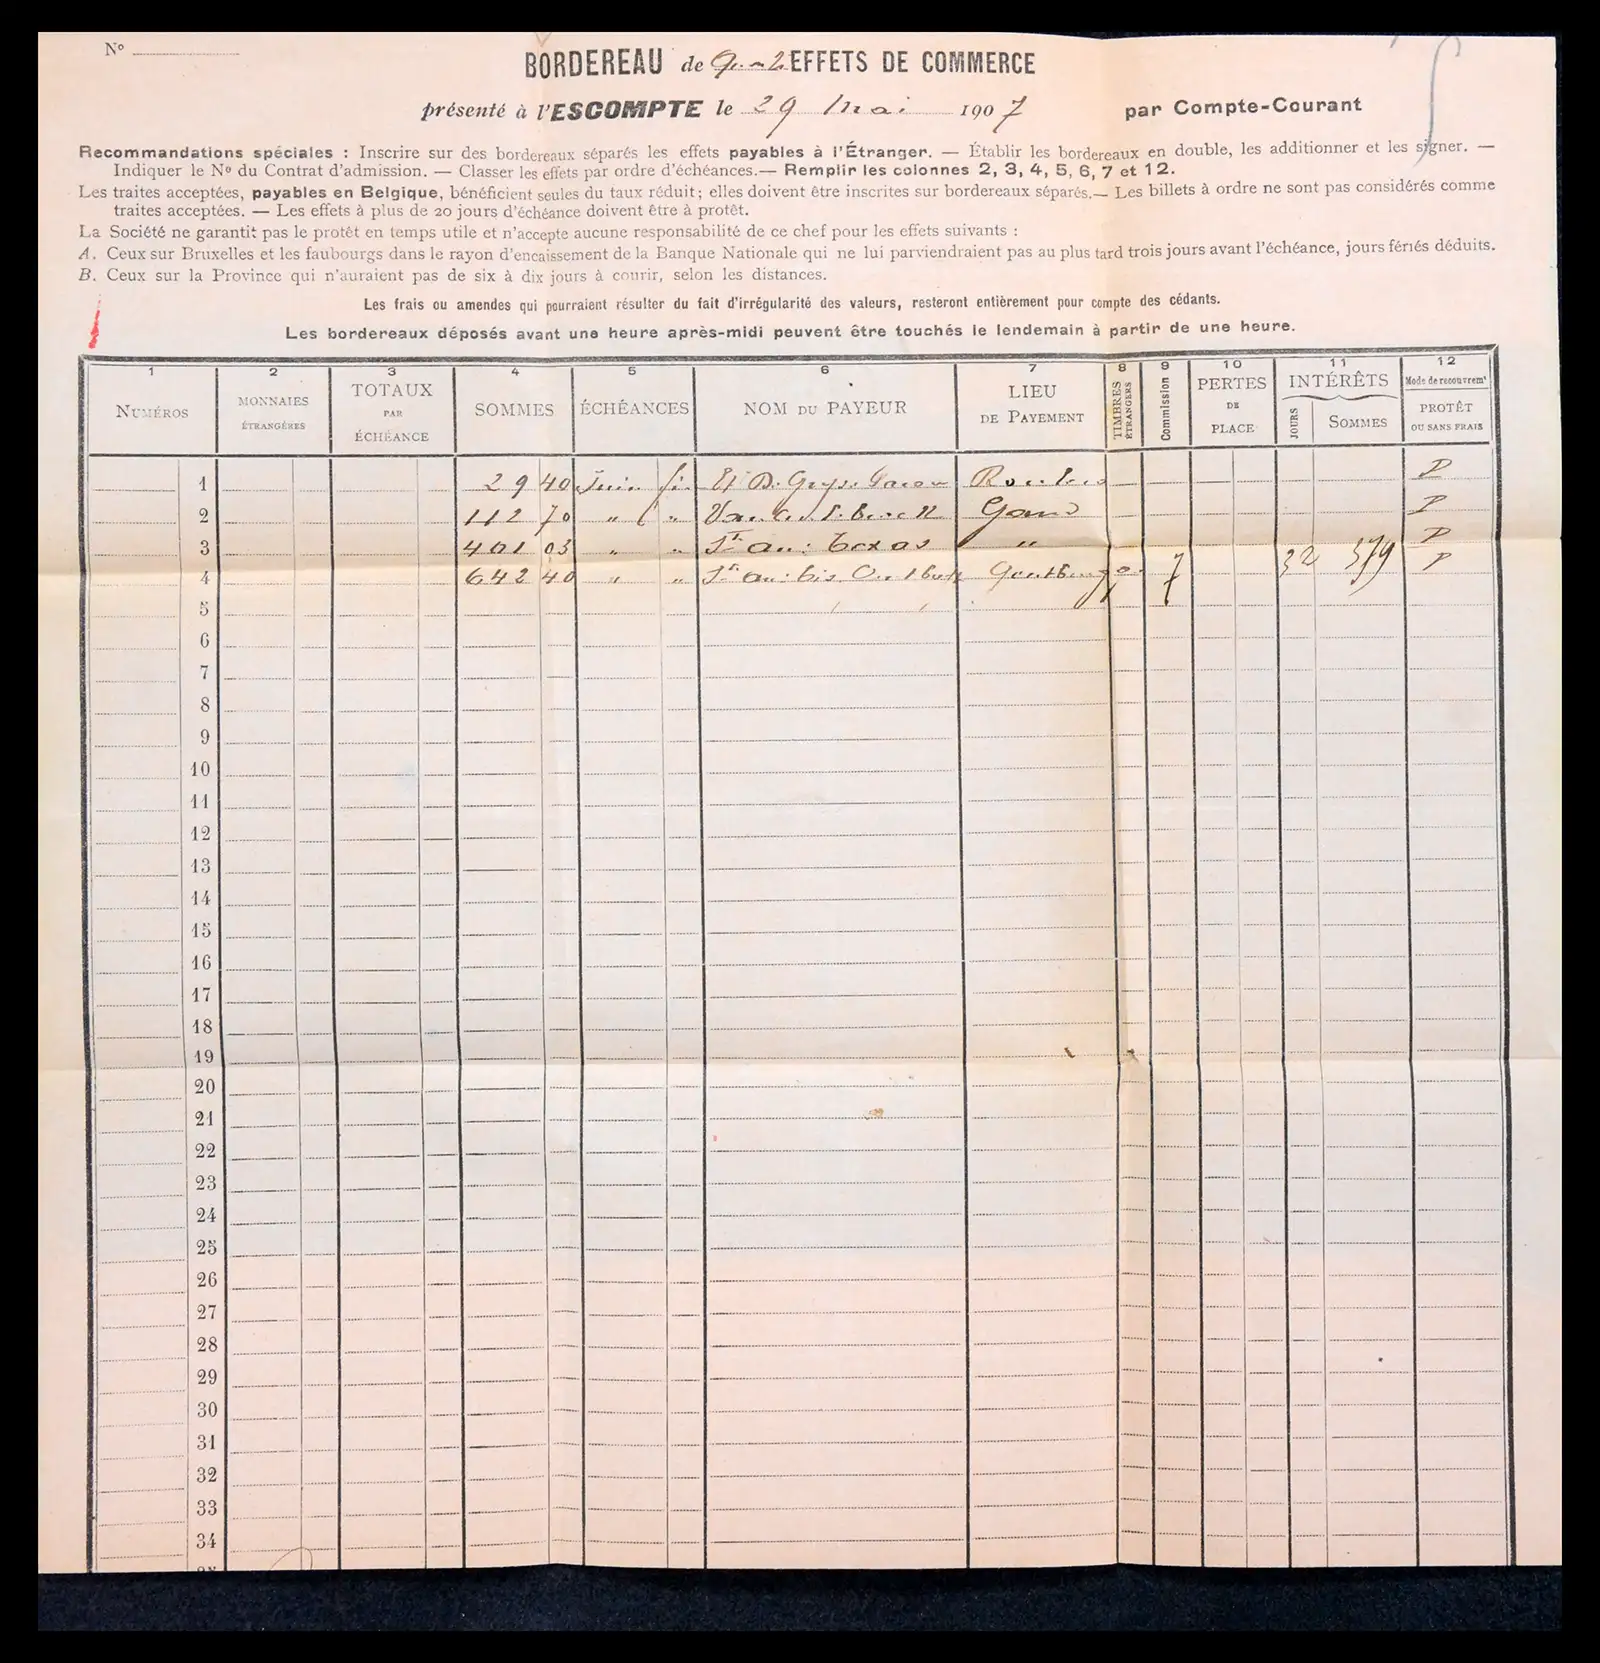 Nº
BORDEREAU de EFFETS DE COMMERCE
présenté à l'ESCOMPTE le 29 Mai 1907 par Compte-Courant
Recommandations spéciales : Inscrire sur des bordereaux séparés les effets payables à l'Étranger. — Établir les bordereaux en double, les additionner et les signer. —
Indiquer le Nº du Contrat d'admission. — Classer les effets par ordre d'échéances. — Remplir les colonnes 2, 3, 4, 5, 6, 7 et 12.
Les traites acceptées, payables en Belgique, bénéficient seules du taux réduit; elles doivent être inscrites sur bordereaux séparés. — Les billets à ordre ne sont pas considérés comme
traites acceptées. — Les effets à plus de 20 jours d'échéance doivent être à protêt.
La Société ne garantit pas le protêt en temps utile et n'accepte aucune responsabilité de ce chef pour les effets suivants :
A. Ceux sur Bruxelles et les faubourgs dans le rayon d'encaissement de la Banque Nationale qui ne lui parviendraient pas au plus tard trois jours avant l'échéance, jours fériés déduits.
B. Ceux sur la Province qui n'auraient pas de six à dix jours à courir, selon les distances.
Les frais ou amendes qui pourraient résulter du fait d'irrégularité des valeurs, resteront entièrement pour compte des cédants.
Les bordereaux déposés avant une heure après-midi peuvent être touchés le lendemain à partir de une heure.
1 2 3 4 5 6 7 8 9 10 11 12
NUMÉROS MONNAIES ÉTRANGÈRES TOTAUX PAR ÉCHÉANCE SOMMES ÉCHÉANCES NOM DU PAYEUR LIEU DE PAYEMENT TIMBRES ÉTRANGERS Commission PERTES DE PLACE INTÉRÊTS JOURS SOMMES Mode de recouvremt PROTÊT OU SANS FRAIS
1 29 40 Juin P
2 112 70 " " Gand P
3 401 03 " " " P
4 642 40 " " 32 379 P
5
6
7
8
9
10
11
12
13
14
15
16
17
18
19
20
21
22
23
24
25
26
27
28
29
30
31
32
33
34